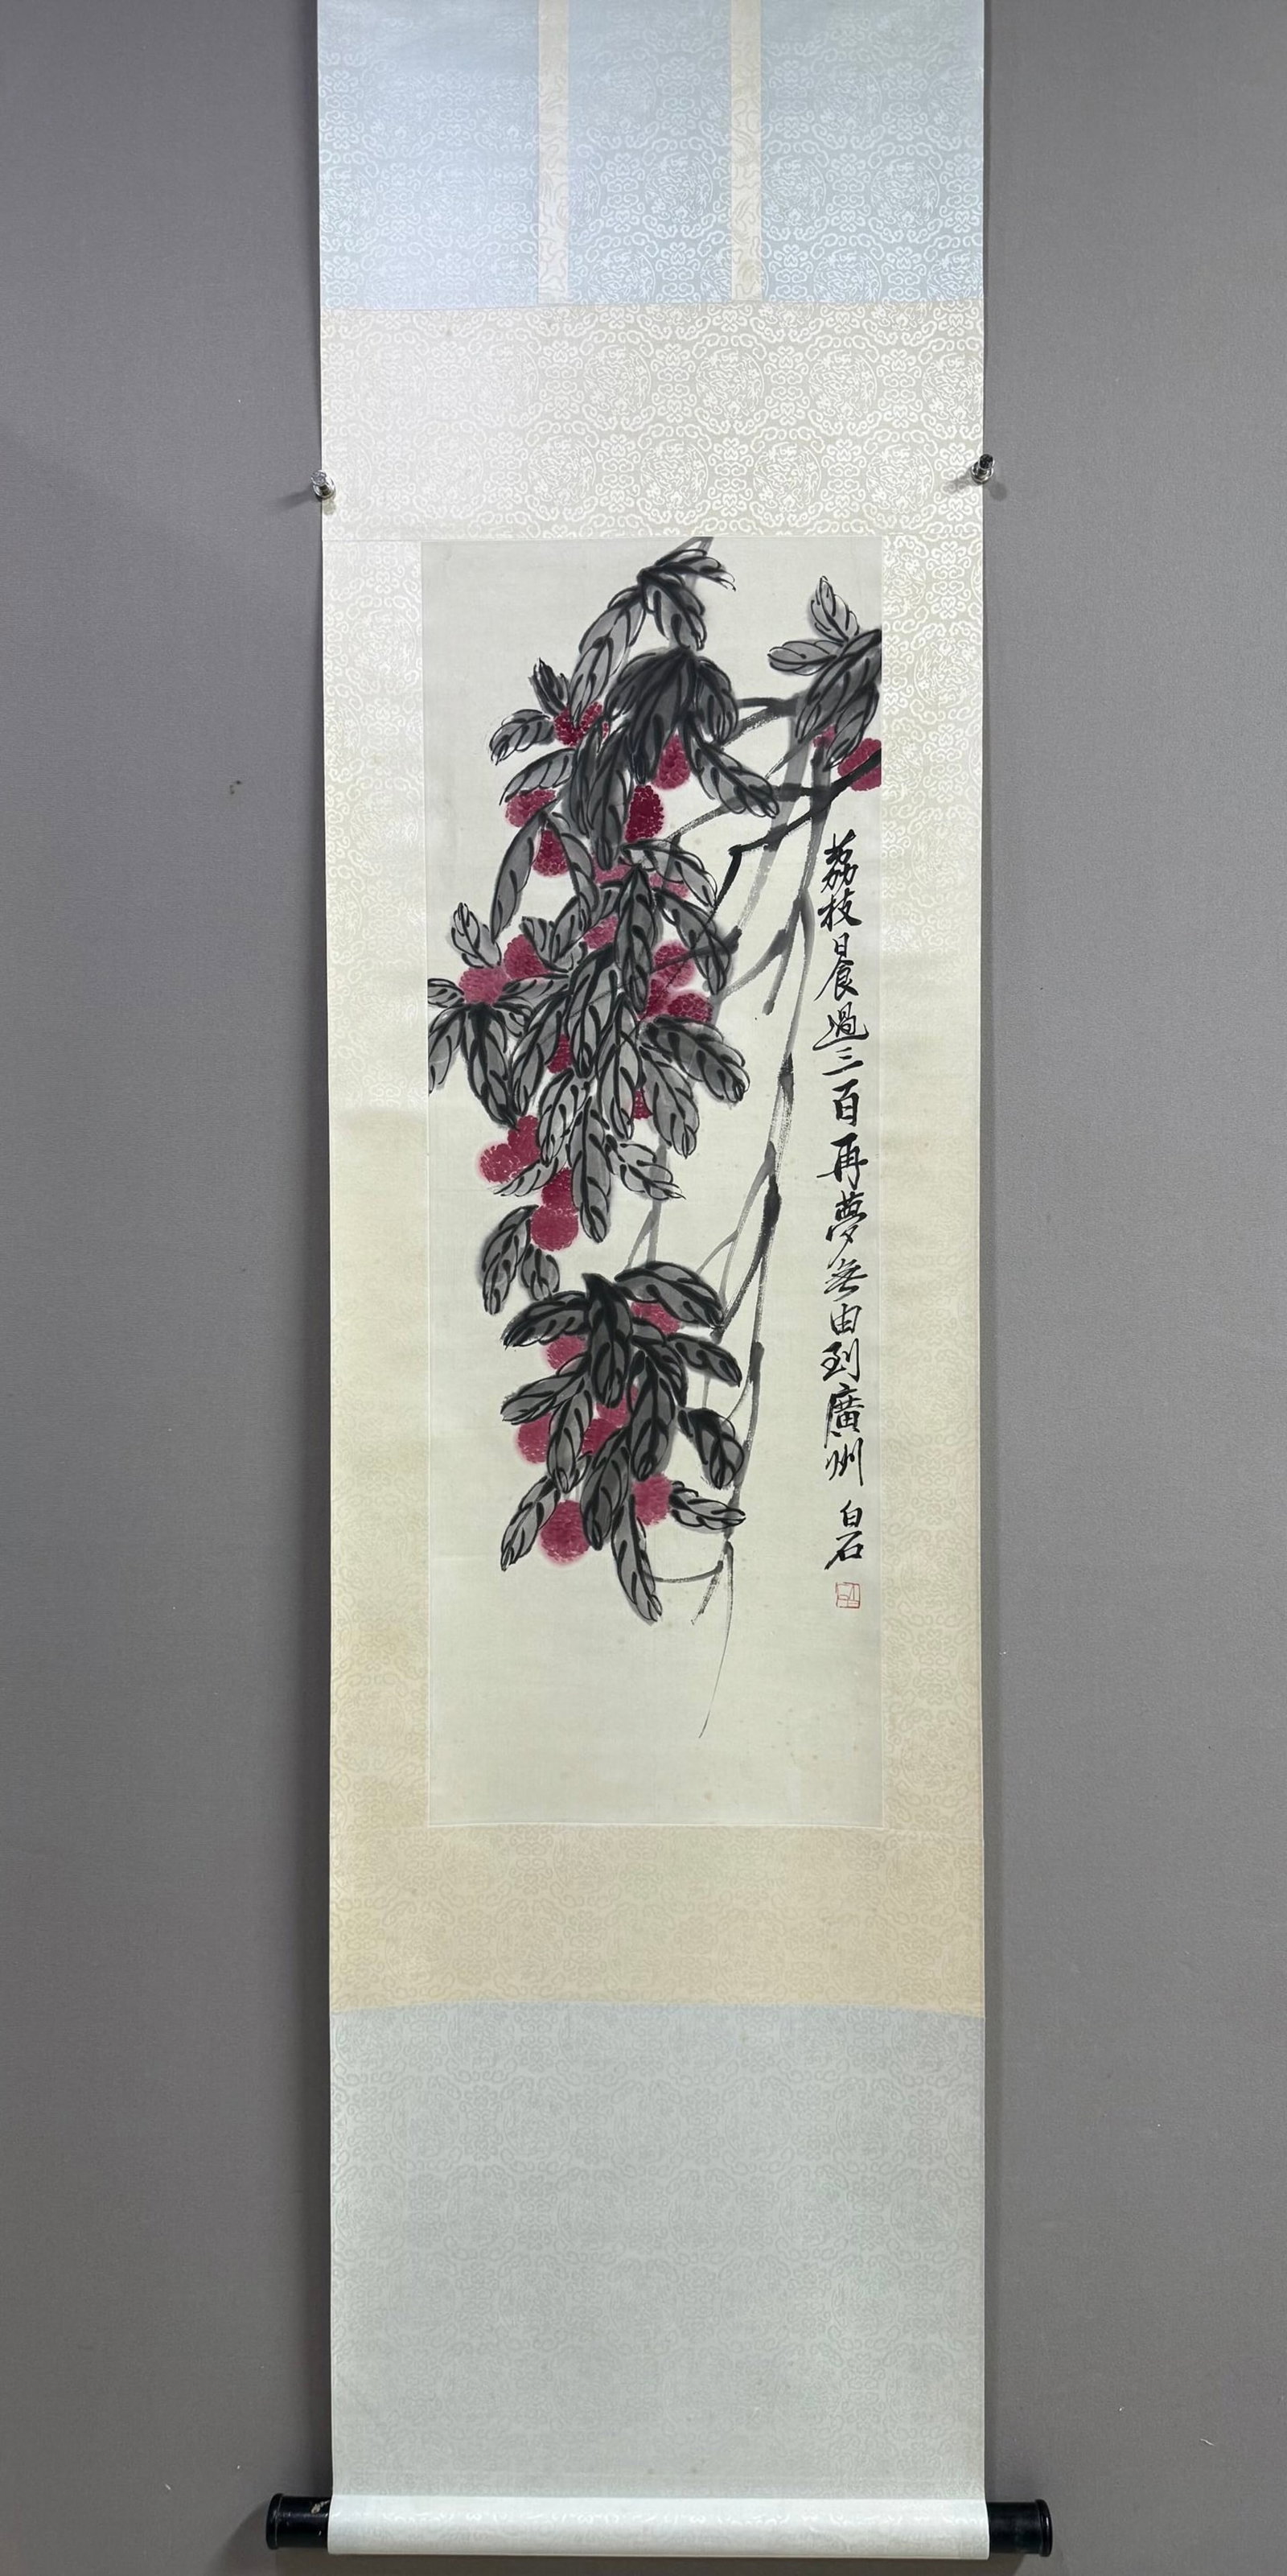 荔枝晨過三百再夢無由到廣州
白石